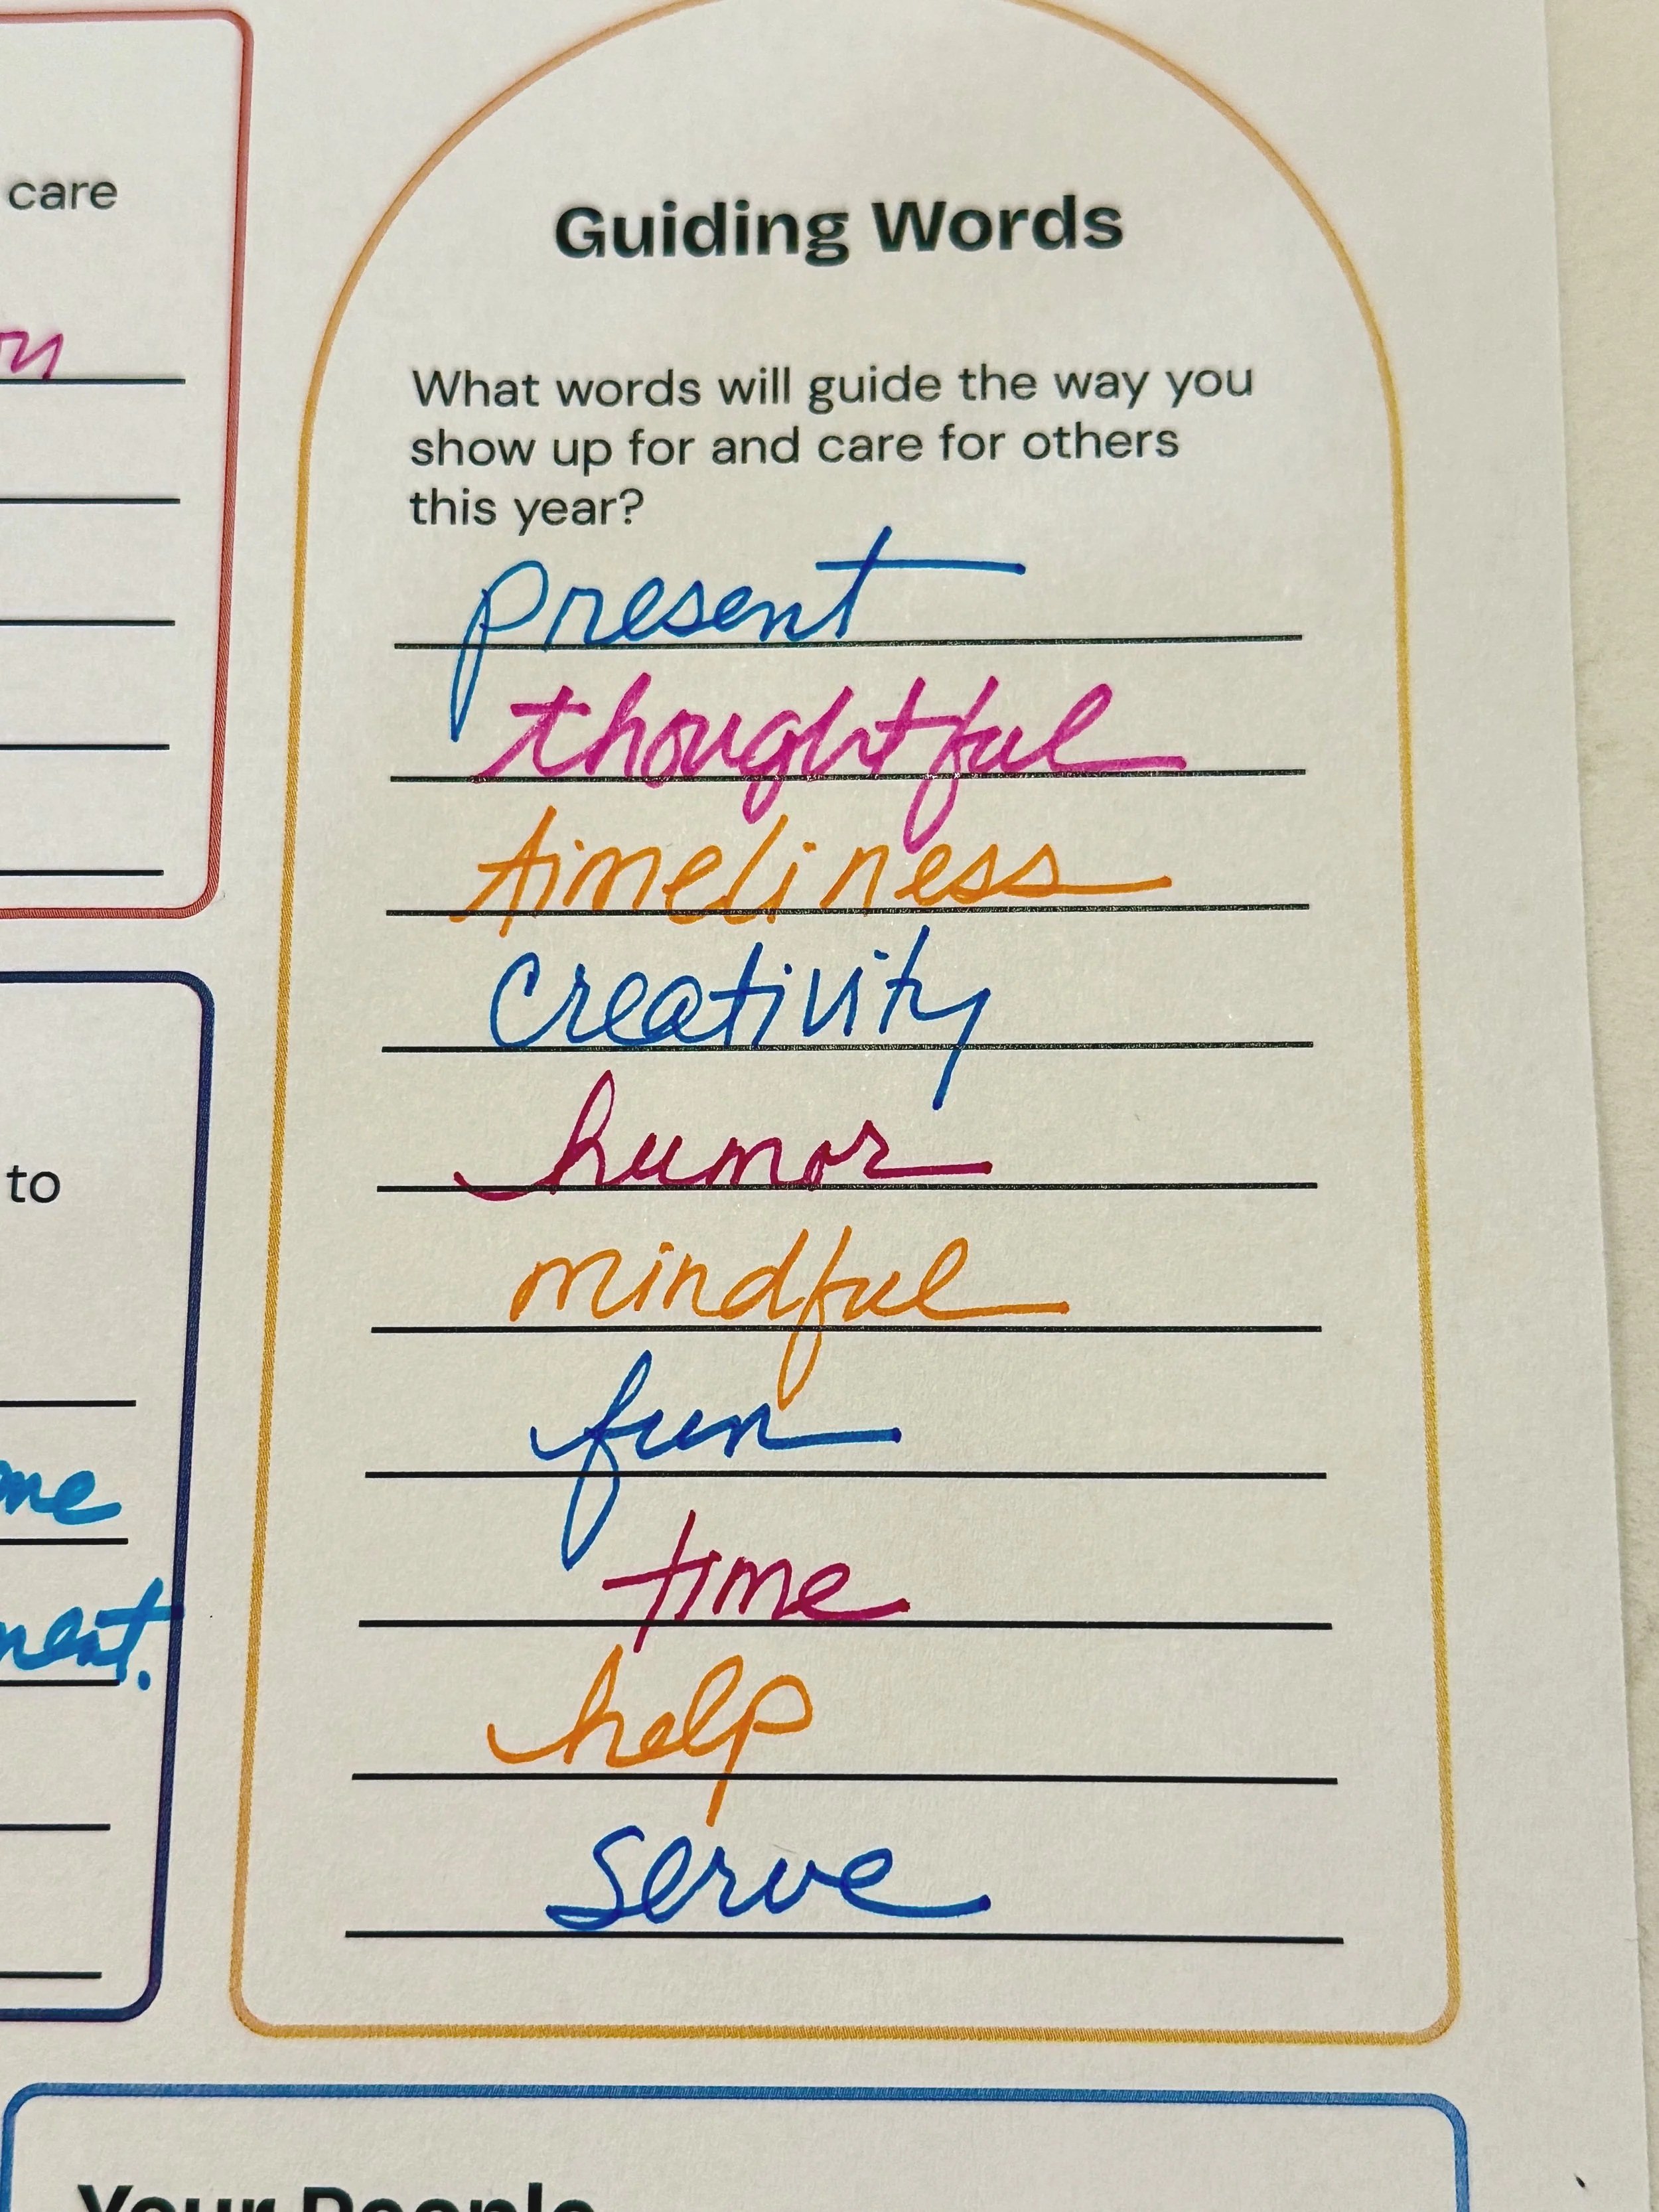 care
Guiding Words
What words will guide the way you
show up for and care for others
this year?
present
thoughtful
timeliness
creativity
humor
mindful
fun
time
help
serve
to
me
Your People